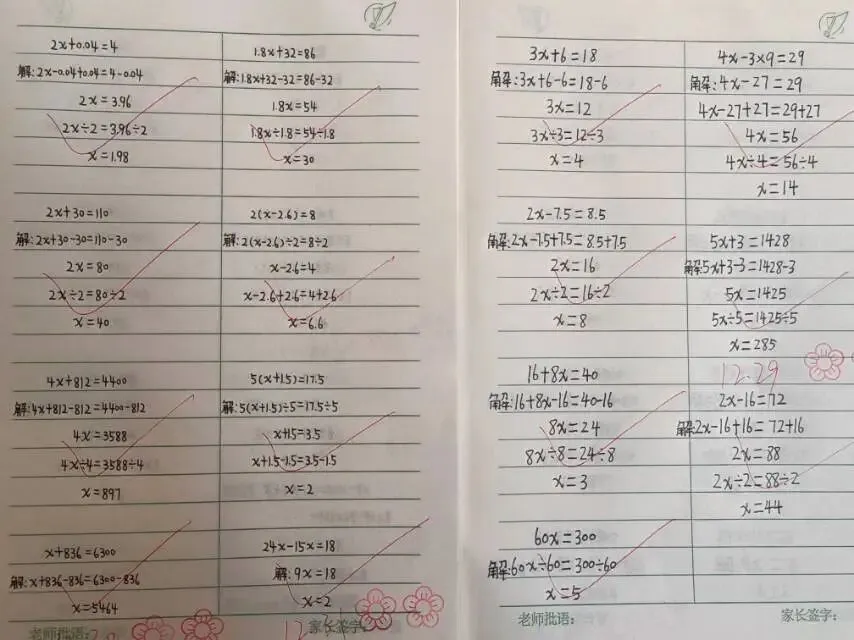 2x+0.04=4
解:2x-0.04+0.04=4-0.04
2x=3.96
2x÷2=3.96÷2
x=1.98
2x+30=110
解:2x+30-30=110-30
2x=80
2x÷2=80÷2
x=40
4x+812=4400
解:4x+812-812=4400-812
4x=3588
4x÷4=3588÷4
x=897
x+836=6300
解:x+836-836=6300-836
x=5464
老师批语:
1.8x+32=86
解:1.8x+32-32=86-32
1.8x=54
1.8x÷1.8=54÷1.8
x=30
2(x-2.6)=8
解:2(x-2.6)÷2=8÷2
x-2.6=4
x-2.6+2.6=4+2.6
x=6.6
5(x+1.5)=17.5
解:5(x+1.5)÷5=17.5÷5
x+1.5=3.5
x+1.5-1.5=3.5-1.5
x=2
24x-15x=18
解:9x=18
x=2
12
家长签字:
3x+6=18
解:3x+6-6=18-6
3x=12
3x÷3=12÷3
x=4
2x-7.5=8.5
解:2x-7.5+7.5=8.5+7.5
2x=16
2x÷2=16÷2
x=8
16+8x=40
解:16+8x-16=40-16
8x=24
8x÷8=24÷8
x=3
60x=300
解:60x÷60=300÷60
x=5
老师批语:
4x-3×9=29
解:4x-27=29
4x-27+27=29+27
4x=56
4x÷4=56÷4
x=14
5x+3=1428
解:5x+3-3=1428-3
5x=1425
5x÷5=1425÷5
x=285
12.29
2x-16=72
解:2x-16+16=72+16
2x=88
2x÷2=88÷2
x=44
家长签字: